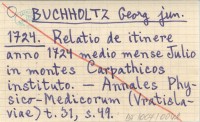 BUCHHOLTZ Georg jun.
1724. Relatio de itinere
anno 1724 medio mense Julio
in montes Carpathicos
instituto. — Annales Phy-
sico-Medicorum (Vratisla-
viae) t. 31, s. 49.